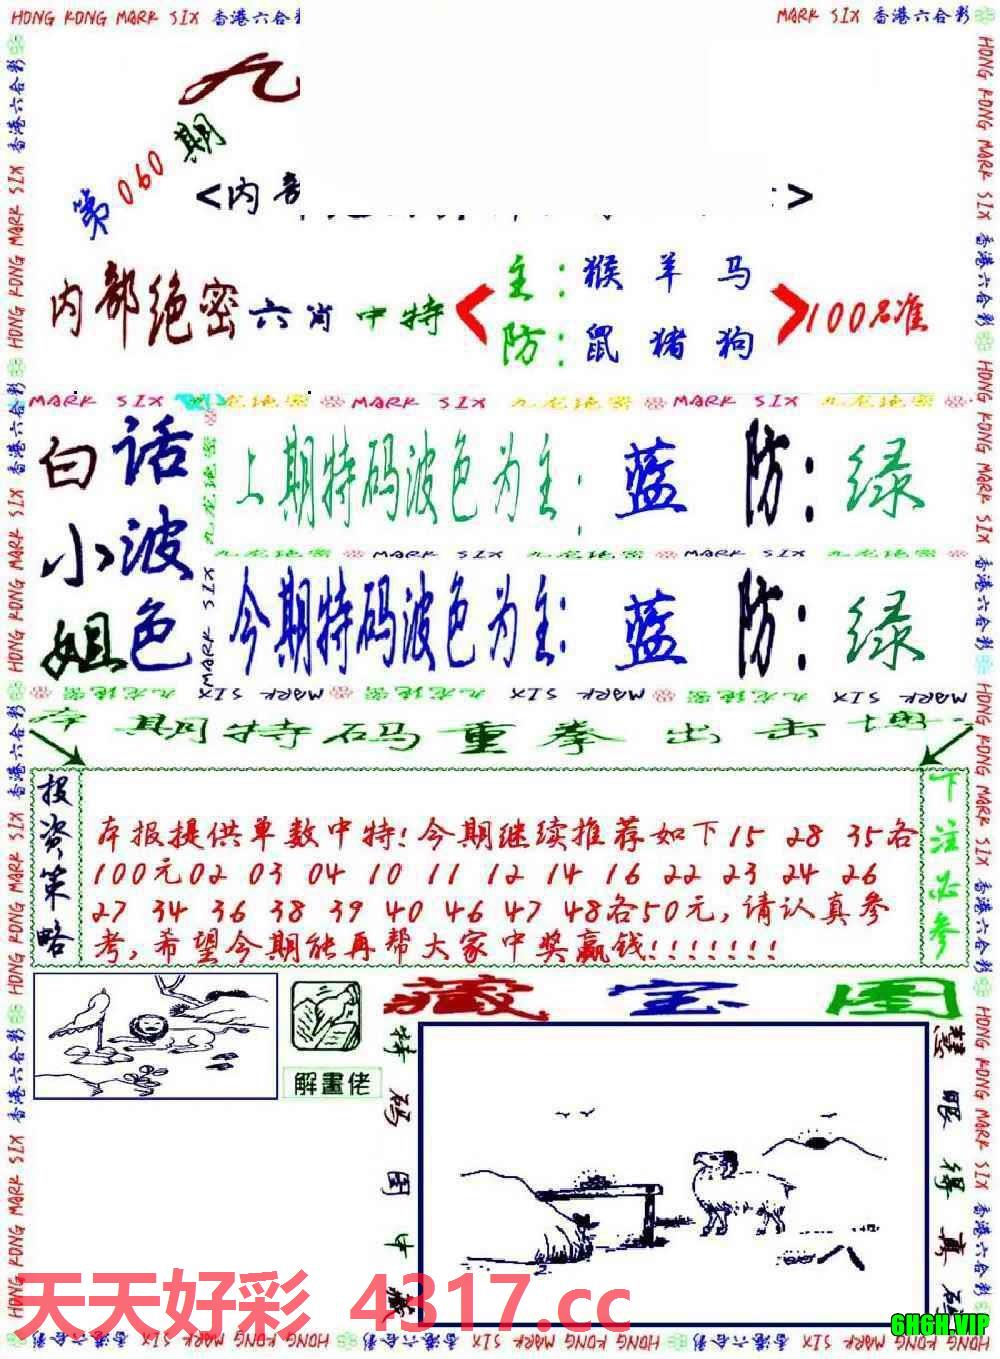 HONG KONG MARK SIX 香港六合彩
MARK SIX 香港六合彩
九
第060期
<内部
>
内部绝密六肖中特
主:猴羊马
防:鼠猪狗
100%准
MARK SIX 九龙绝密 MARK SIX 九龙绝密 MARK SIX 九龙绝密
白小姐
话波色
上期特码波色为主: 蓝 防: 绿
九龙绝密 MARK SIX 九龙绝密 MARK SIX 九龙绝密
今期特码波色为主: 蓝 防: 绿
本期特码重拳出击
投资策略
本报提供单数中特!今期继续推荐如下15 28 35各
100元02 03 04 10 11 12 14 16 22 23 24 26
27 34 36 38 39 40 46 47 48各50元,请认真参
考,希望今期能再帮大家中奖赢钱!!!!!!!
下注必参
解畫佬
藏宝图
特码图中藏
慧眼得真
天天好彩 4317.cc
6H6H.VIP